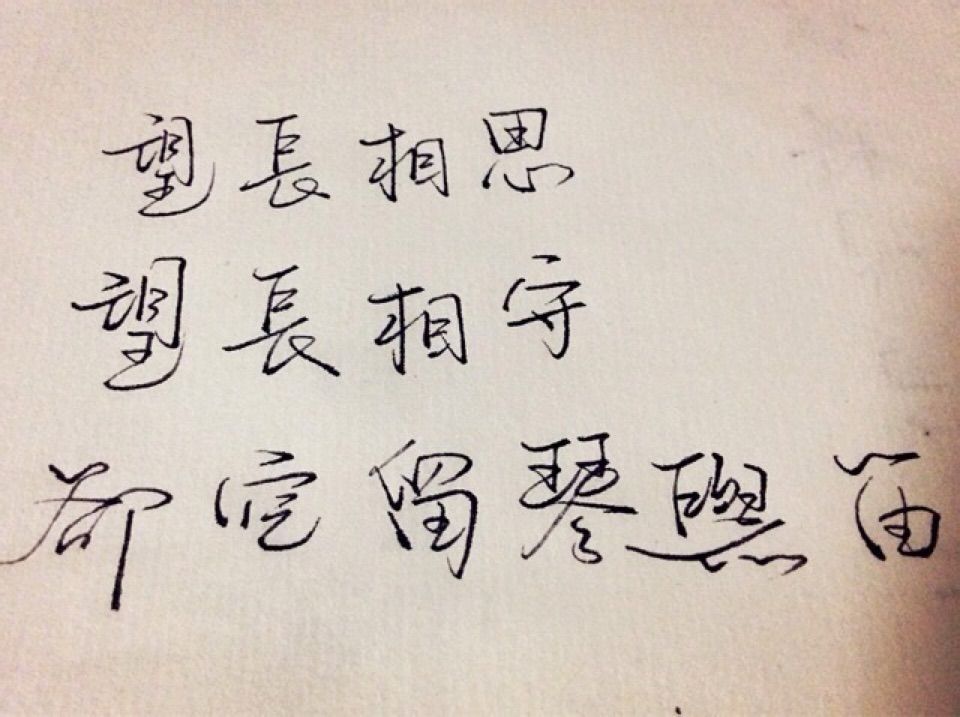 望長相思
望長相守
卻空留琴與笛